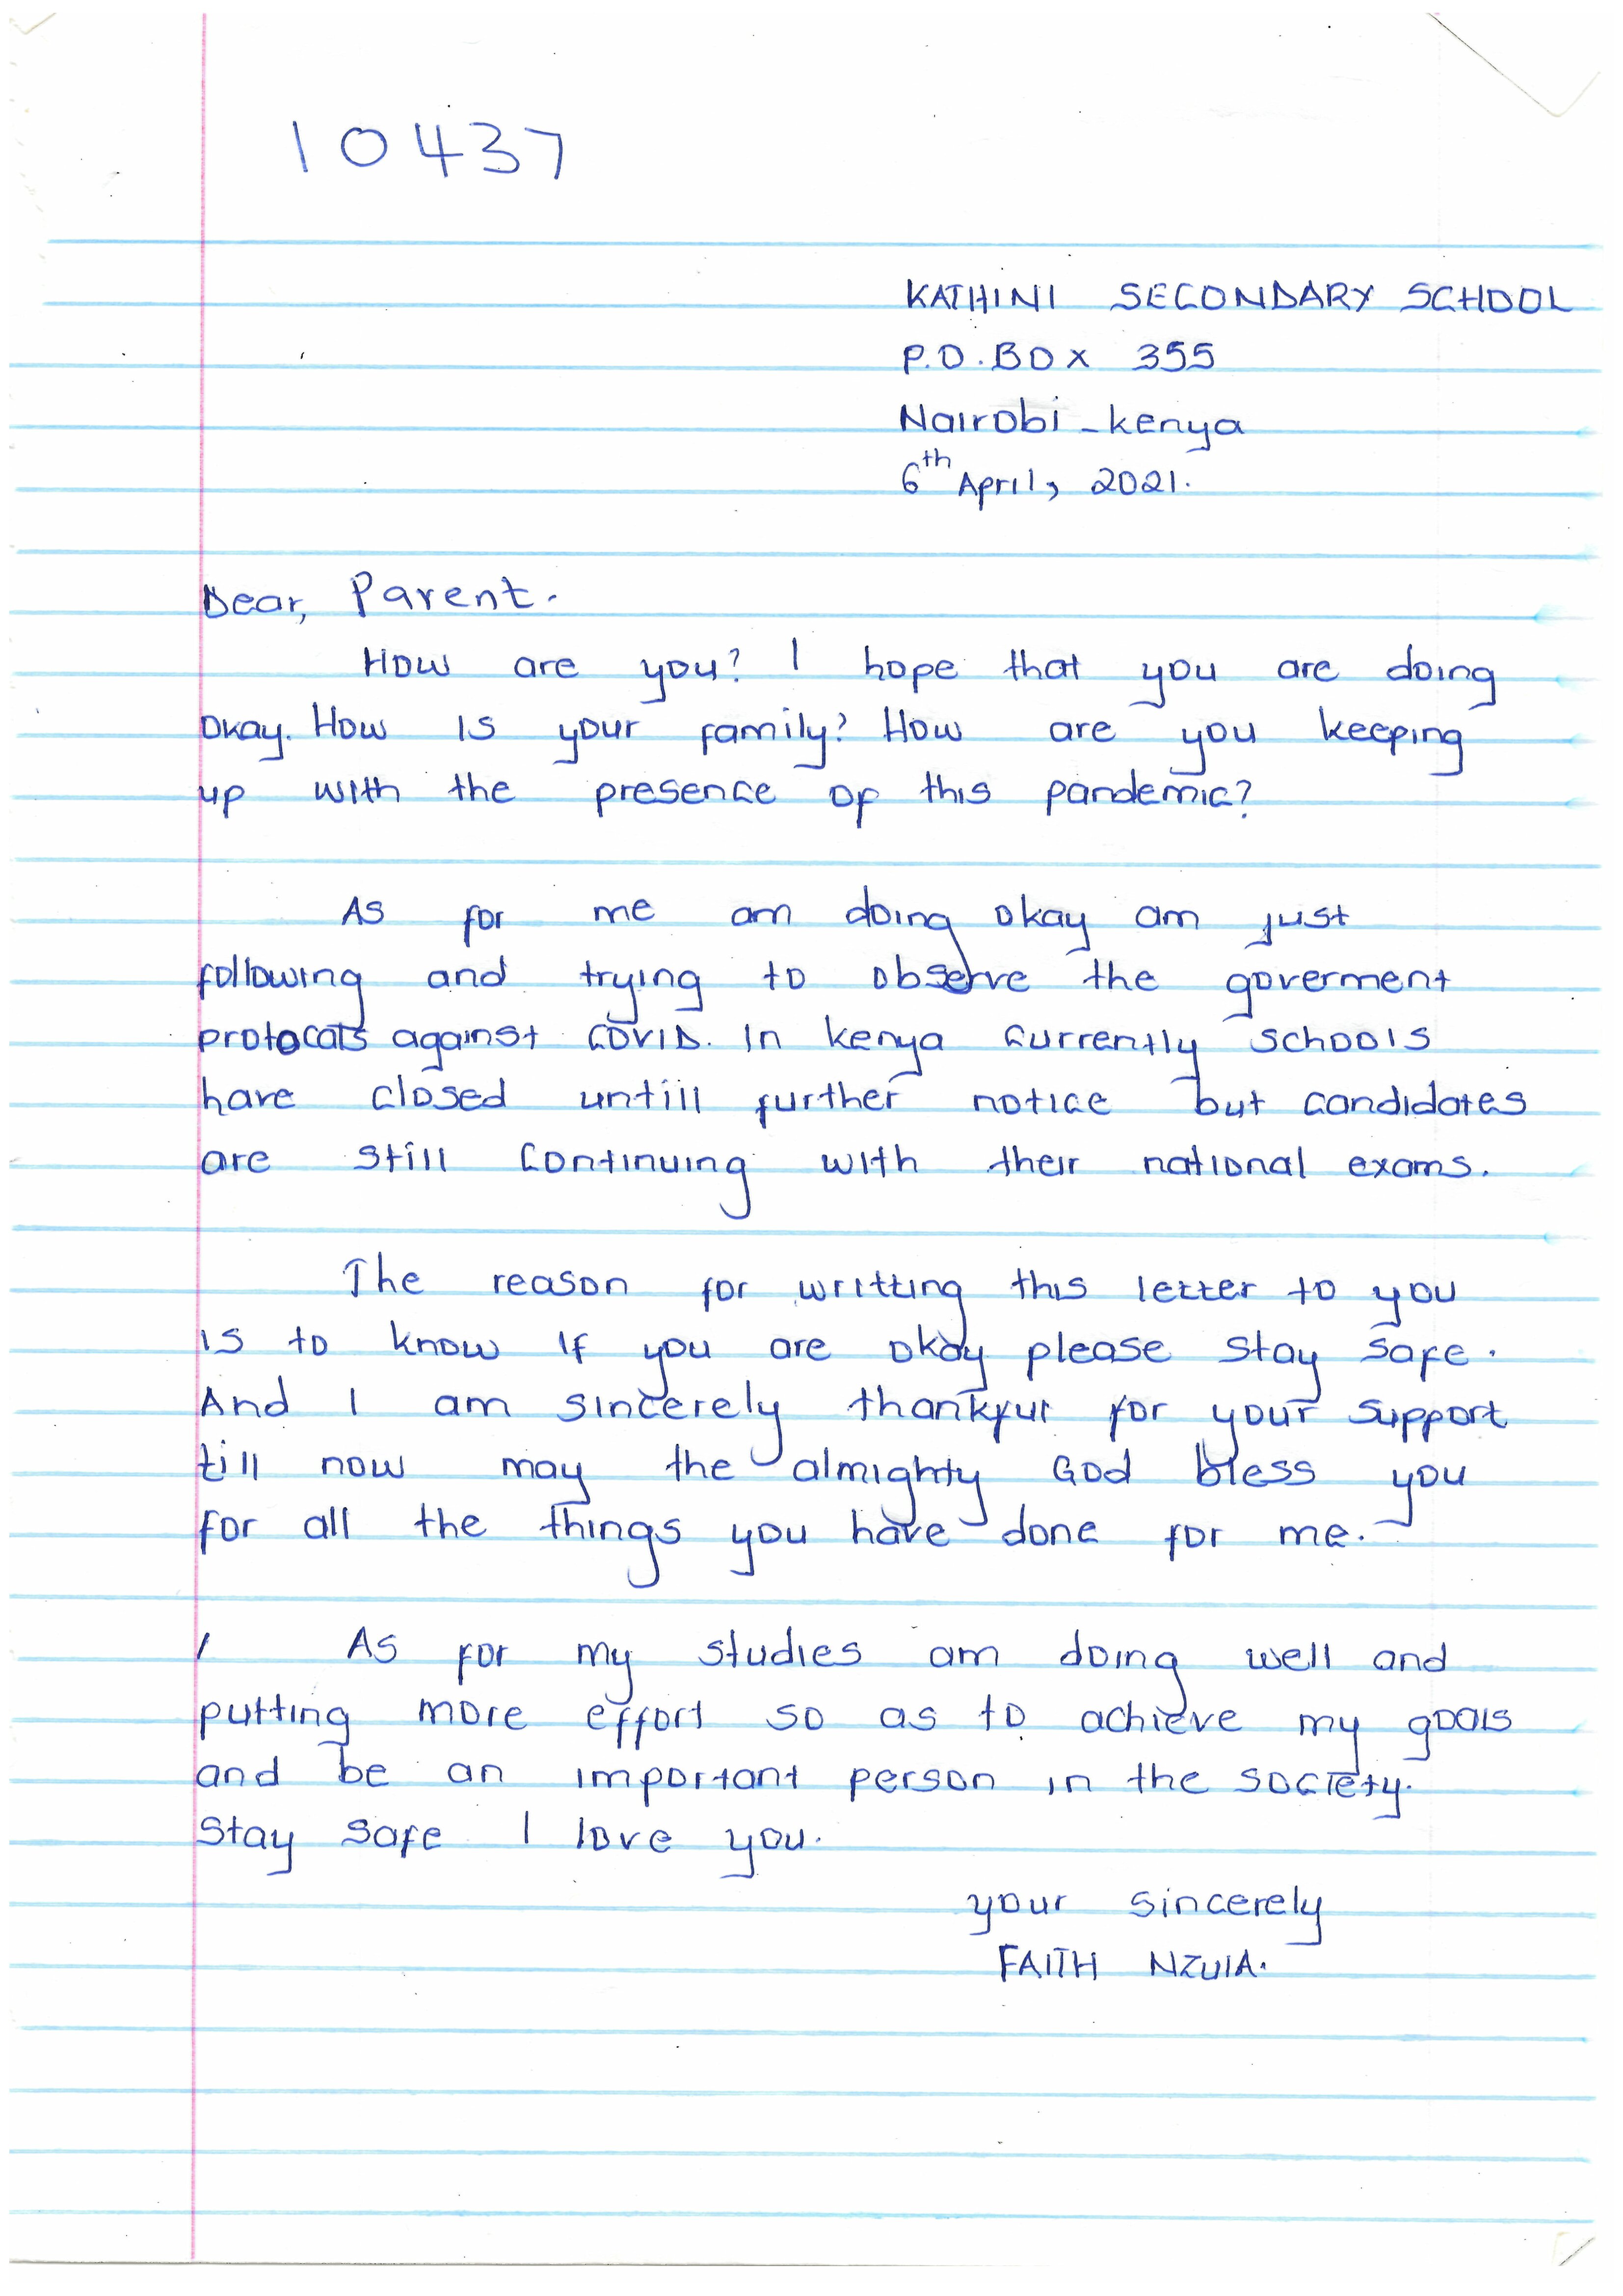 10437
KATHINI SECONDARY SCHOOL
P.O.BOX 355
Nairobi-kenya
6th April, 2021.
Dear, Parent.
How are you? I hope that you are doing
okay. How is your family? How are you keeping
up with the presence of this pandemic?
As for me am doing okay am just
following and trying to observe the goverment
protocals against COVID. In kenya currently schools
have closed untill further notice but candidates
are still continuing with their national exams.
The reason for writting this letter to you
is to know if you are okay please stay safe.
And I am sincerely thankful for your support
till now may the almighty God bless you
for all the things you have done for me.
As for my studies am doing well and
putting more effort so as to achieve my goals
and be an important person in the society.
Stay safe I love you.
your sincerely
FAITH NZUIA.